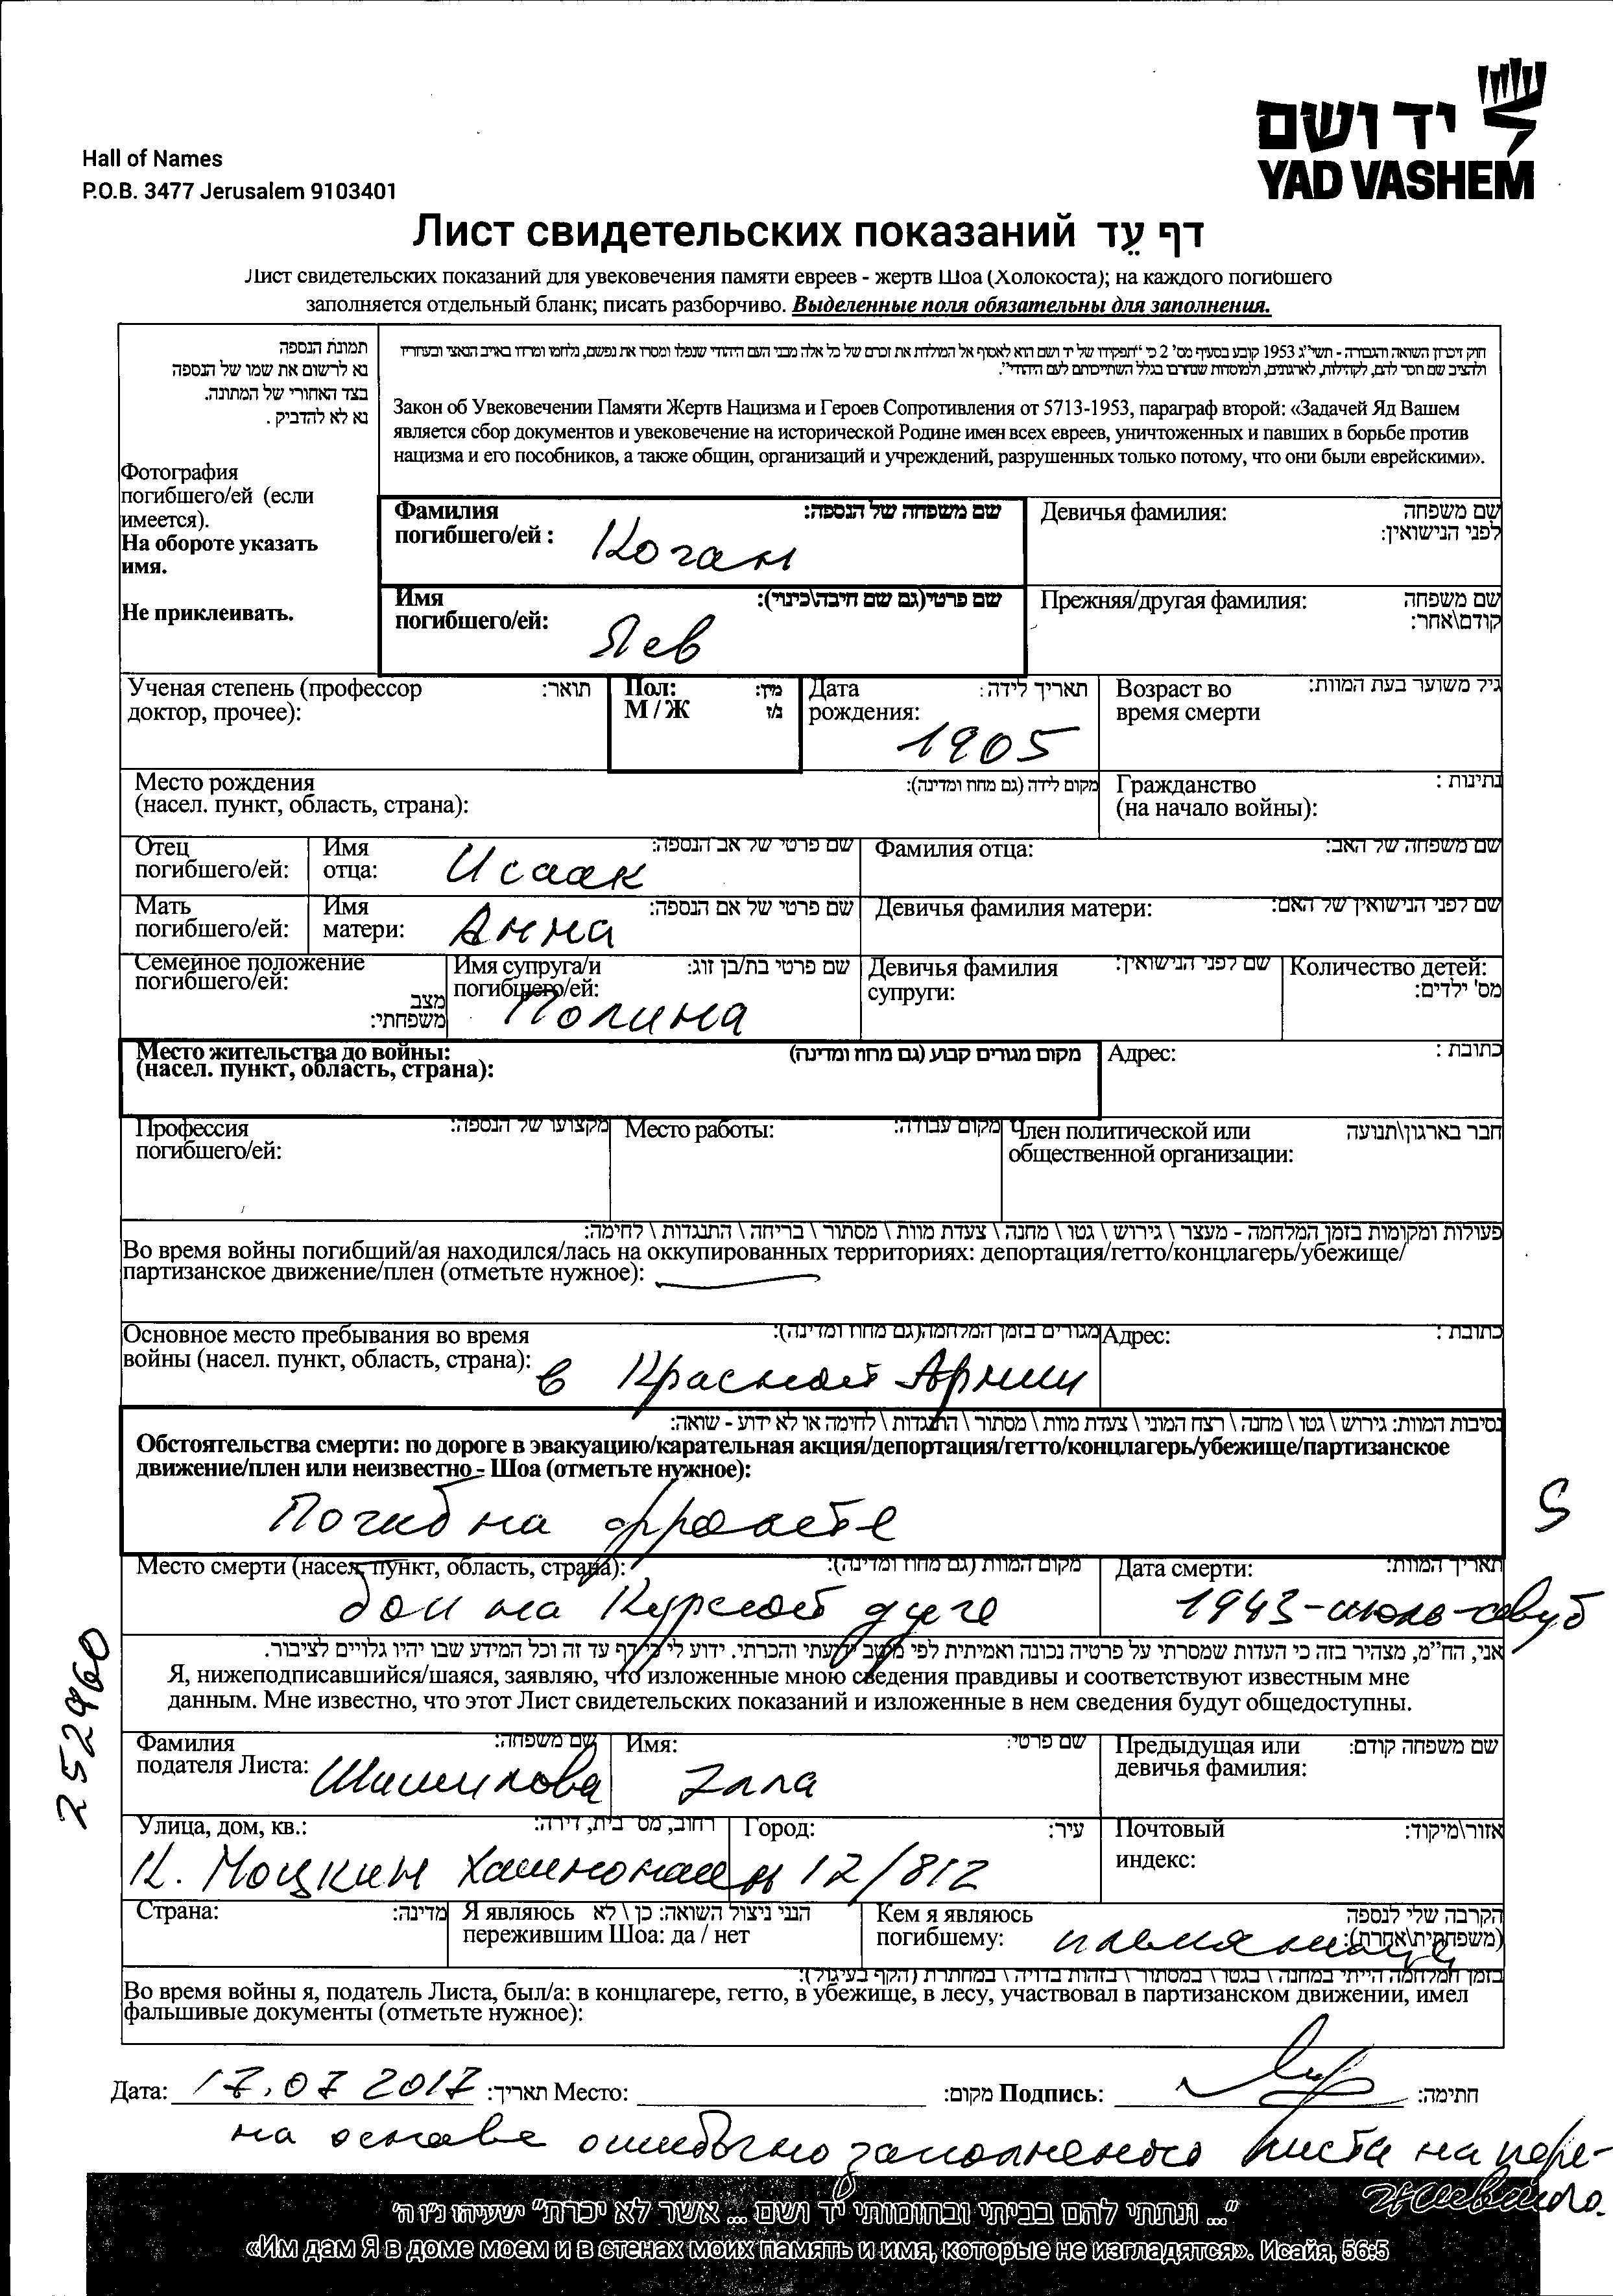 יד ושם
YAD VASHEM
Hall of Names
P.O.B. 3477 Jerusalem 9103401
Лист свидетельских показаний דף עֵד
Лист свидетельских показаний для увековечения памяти евреев - жертв Шоа (Холокоста); на каждого погибшего
заполняется отдельный бланк; писать разборчиво. Выделенные поля обязательны для заполнения.
תמונת הנספה
נא לרשום את שמו של הנספה
בצד האחורי של המתונה.
נא לא להדביק .
Фотография
погибшего/ей (если
имеется).
На обороте указать
имя.
Не приклеивать.
חוק זיכרון השואה והגבורה - תשי"ג 1953 קובע בסעיף מס' 2 כי "תפקידו של יד ושם הוא לאסוף אל המולדת את זכרם של כל אלה מבני העם היהודי שנפלו ומסרו את נפשם, נלחמו ומרדו באויב הנאצי ובעוזריו
ולהציב שם וזכר להם, לקהילות, לארגונים, ולמוסדות שנחרבו בגלל השתייכותם לעם היהודי".
Закон об Увековечении Памяти Жертв Нацизма и Героев Сопротивления от 5713-1953, параграф второй: «Задачей Яд Вашем
является сбор документов и увековечение на исторической Родине имен всех евреев, уничтоженных и павших в борьбе против
нацизма и его пособников, а также общин, организаций и учреждений, разрушенных только потому, что они были еврейскими».
Фамилия שם משפחה של הנספה:
погибшего/ей : Коган
Девичья фамилия: שם משפחה
לפני הנישואין:
Имя שם פרטי(גם שם חיבה\כינוי):
погибшего/ей: Лев
Прежняя/другая фамилия: שם משפחה
קודם\אחר:
Ученая степень (профессор תואר:
доктор, прочее):
Пол: מין:
М / Ж ז/נ
Дата תאריך לידה:
рождения: 1905
Возраст во גיל משוער בעת המוות:
время смерти
Место рождения מקום לידה (גם מחוז ומדינה):
(насел. пункт, область, страна):
Гражданство נתינות :
(на начало войны):
Отец
погибшего/ей:
Имя שם פרטי של אב הנספה:
отца: Исаак
Фамилия отца: שם משפחה של האב:
Мать
погибшего/ей:
Имя שם פרטי של אם הנספה:
матери: Анна
Девичья фамилия матери: שם לפני הנישואין של האם:
Семейное положение
погибшего/ей:
מצב
משפחתי:
Имя супруга/и שם פרטי בת/בן זוג:
погибшего/ей:
Полина
Девичья фамилия שם לפני הנישואין:
супруги:
Количество детей:
מס' ילדים:
Место жительства до войны: מקום מגורים קבוע (גם מחוז ומדינה)
(насел. пункт, область, страна):
Адрес: כתובת :
Профессия מקצועו של הנספה:
погибшего/ей:
Место работы: מקום עבודה:
Член политической или חבר בארגון\תנועה
общественной организации:
פעולות ומקומות בזמן המלחמה - מעצר \ גירוש \ גטו \ מחנה \ צעדת מוות \ מסתור \ בריחה \ התנגדות \ לחימה:
Во время войны погибший/ая находился/лась на оккупированных территориях: депортация/гетто/концлагерь/убежище/
партизанское движение/плен (отметьте нужное):
Основное место пребывания во время מגורים בזמן המלחמה(גם מחוז ומדינה):
войны (насел. пункт, область, страна): в Красной Армии
Адрес: כתובת :
נסיבות המוות: גירוש \ גטו \ מחנה \ רצח המוני \ צעדת מוות \ מסתור \ התנגדות \ לחימה או לא ידוע - שואה:
Обстоятельства смерти: по дороге в эвакуацию/карательная акция/депортация/гетто/концлагерь/убежище/партизанское
движение/плен или неизвестно - Шоа (отметьте нужное):
Погиб на фронте
S
Место смерти (насел. пункт, область, страна): מקום המוות (גם מחוז ומדינה):
бои на Курской дуге
Дата смерти: תאריך המוות:
1943-июль-август
252460
אני, הח"מ, מצהיר בזה כי העדות שמסרתי על פרטיה נכונה ואמיתית לפי מיטב ידיעתי והכרתי. ידוע לי כי דף עד זה וכל המידע שבו יהיו גלויים לציבור.
Я, нижеподписавшийся/шаяся, заявляю, что изложенные мною сведения правдивы и соответствуют известным мне
данным. Мне известно, что этот Лист свидетельских показаний и изложенные в нем сведения будут общедоступны.
Фамилия שם משפחה:
подателя Листа: Шишикова
Имя: שם פרטי:
Элла
Предыдущая или שם משפחה קודם:
девичья фамилия:
Улица, дом, кв.: רחוב, מס' בית, דירה:
Город: עיר:
К. Моцкин Хашмонаим 12/812
Почтовый אזור\מיקוד:
индекс:
Страна: מדינה:
Я являюсь הנני ניצול השואה: כן \ לא
пережившим Шоа: да / нет
Кем я являюсь הקרבה שלי לנספה
погибшему: племянница (משפחתית\אחרת):
בזמן המלחמה הייתי במחנה \ בגטו \ במסתור \ בזהות בדויה \ במחתרת (הקף בעיגול):
Во время войны я, податель Листа, был/а: в концлагере, гетто, в убежище, в лесу, участвовал в партизанском движении, имел
фальшивые документы (отметьте нужное):
Дата: 17.07 2017 תאריך: Место: מקום: Подпись: חתימה:
на основе ошибочно заполненого листа на пере-
жившего.
"... ונתתי להם בביתי ובחומותי יד ושם ... אשר לא יכרת" ישעיהו נ"ו ה'
«Им дам Я в доме моем и в стенах моих память и имя, которые не изгладятся». Исайя, 56:5